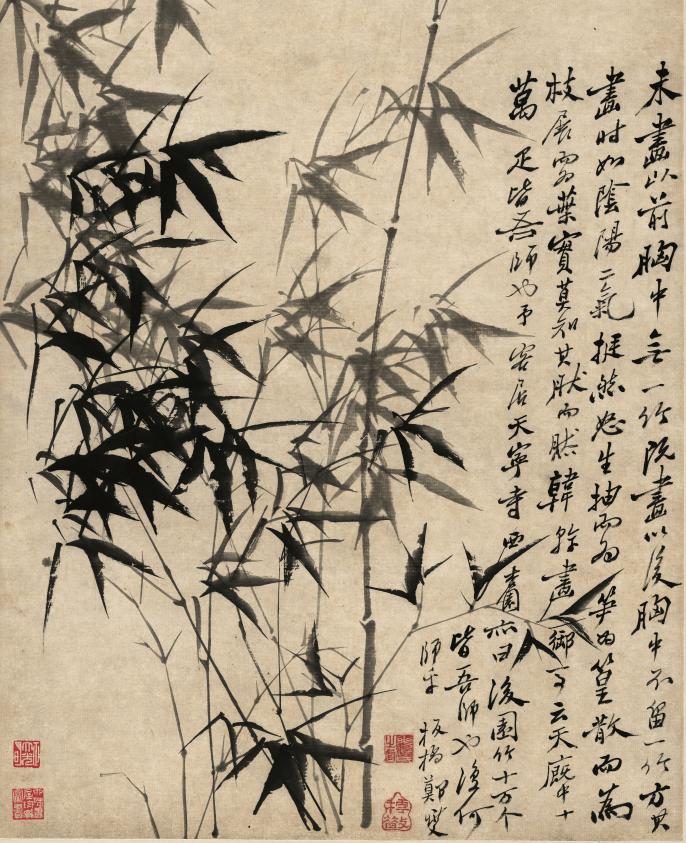 未畫以前胸中无一竹既畫以後胸中不留一竹方其
畫時如陰陽二氣挺然怒生抽而為笋為篁散而為
枝展而為葉實莫知其然而然韓幹畫御馬云天廄中十
萬疋皆吾師也予客居天寧寺西杏園亦曰後園竹十万个
皆吾師也復何
師乎 板橋鄭燮